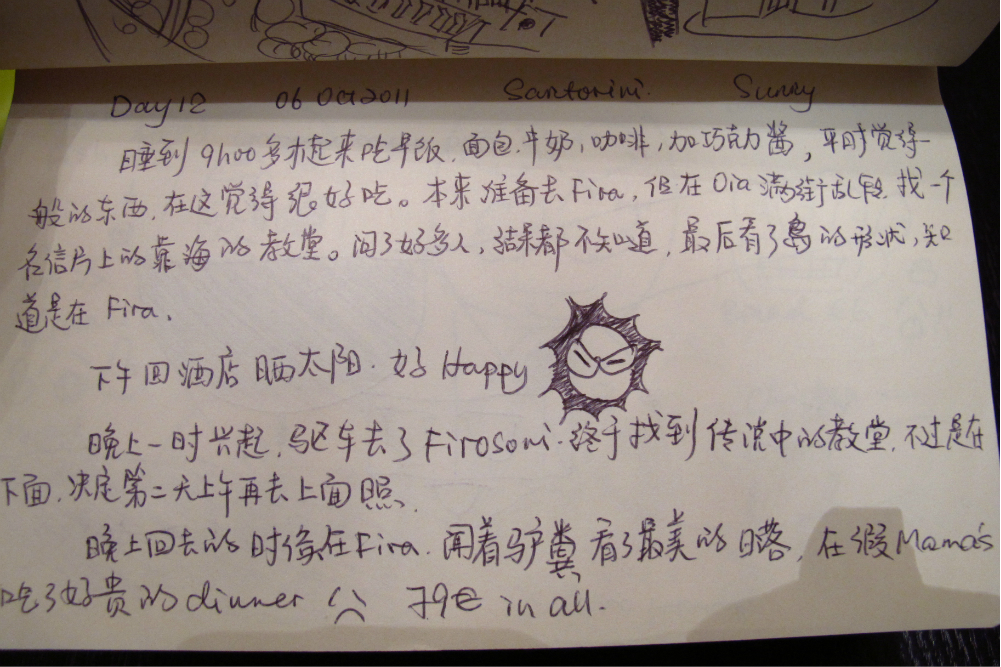 Day 12 06 Oct 2011 Santorini. Sunny
睡到 9h00 多才起来吃早饭，面包，牛奶，咖啡，加巧克力酱，平时觉得一
般的东西，在这觉得很好吃。本来准备去Fira，但在Oia满街乱串找一个
名信片上的靠海的教堂。问了好多人，结果都不知道，最后看了岛的形状，知
道是在 Fira。
下午回酒店晒太阳。好 Happy
晚上一时兴起，驱车去了 Firosoni。终于找到传说中的教堂，不过是在
下面，决定第二天上午再去上面照。
晚上回去的时候在Fira，闻着驴粪看了最美的日落，在假Mama's
吃了好贵的dinner 79€ in all.